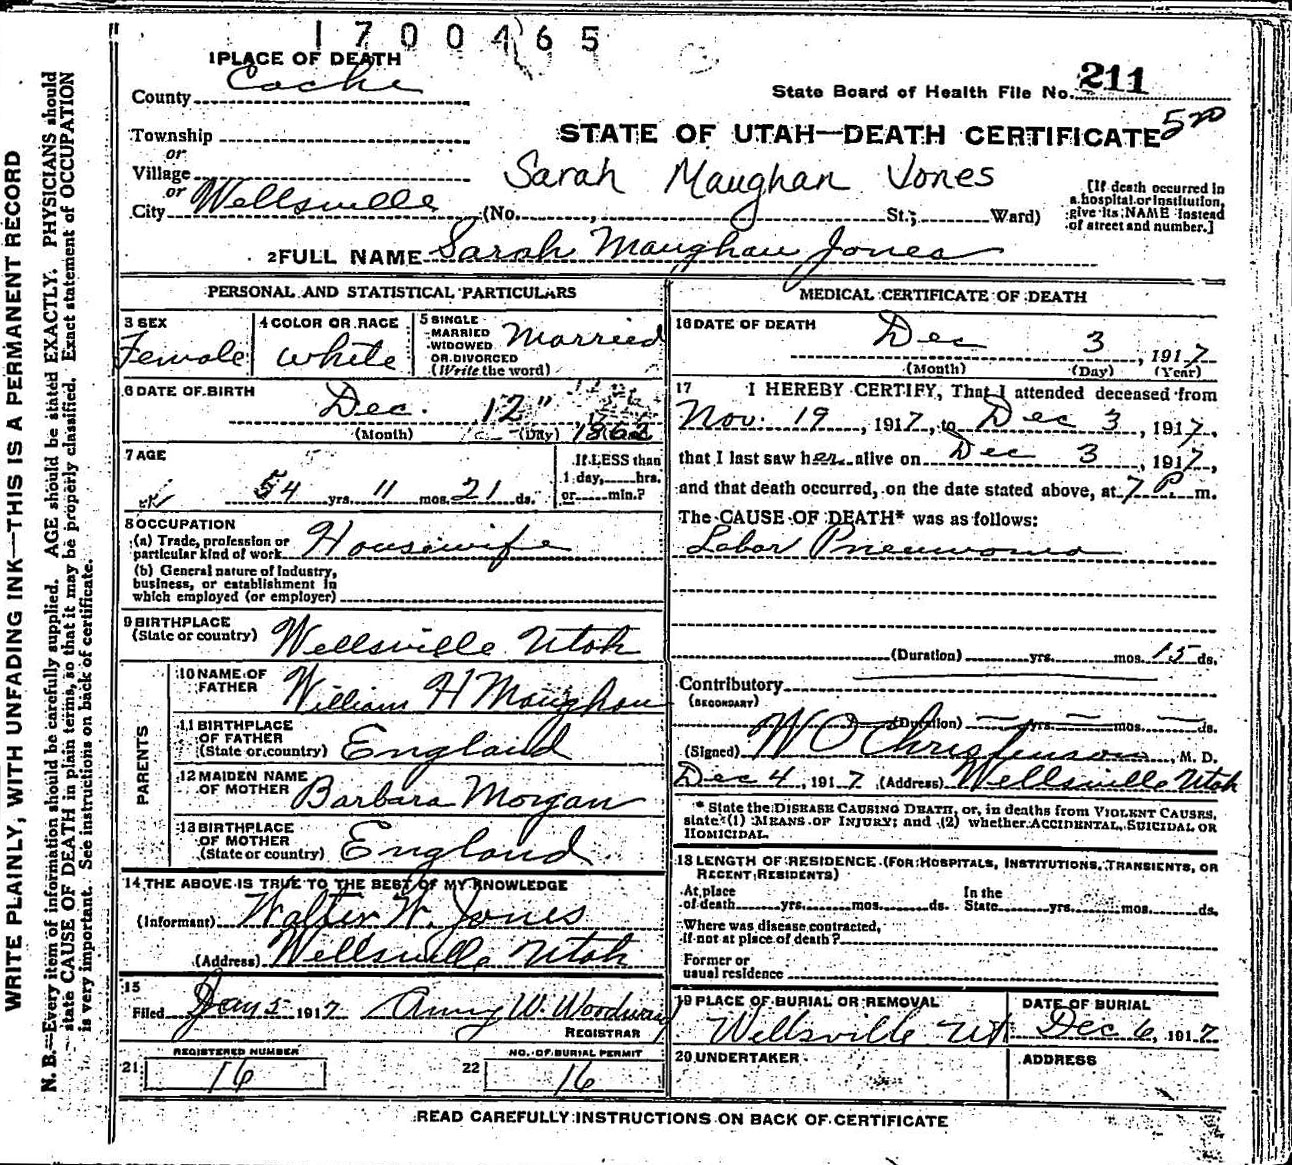 1700465
1 PLACE OF DEATH
County Cache
State Board of Health File No. 211
Township
STATE OF UTAH—DEATH CERTIFICATE
or
Village
Sarah Maughan Jones
or
City Wellsville (No. , St.; Ward)
[If death occurred in
a hospital or institution,
give its NAME instead
of street and number.]
2 FULL NAME Sarah Maughan Jones
PERSONAL AND STATISTICAL PARTICULARS
3 SEX
Female
4 COLOR OR RACE
white
5 SINGLE
MARRIED
WIDOWED
OR DIVORCED
(Write the word)
Married
6 DATE OF BIRTH
Dec. 12"
(Month) (Day)
7 AGE
54 yrs. 11 mos. 21 ds.
If LESS than
1 day, hrs.
or min.?
8 OCCUPATION
(a) Trade, profession or
particular kind of work Housewife
(b) General nature of Industry,
business, or establishment in
which employed (or employer)
9 BIRTHPLACE
(State or country) Wellsville Utah
PARENTS
10 NAME OF
FATHER William H Maughan
11 BIRTHPLACE
OF FATHER
(State or country) England
12 MAIDEN NAME
OF MOTHER Barbara Morgan
13 BIRTHPLACE
OF MOTHER
(State or country) England
14 THE ABOVE IS TRUE TO THE BEST OF MY KNOWLEDGE
(Informant) Walter W. Jones
(Address) Wellsville Utah
15
Filed Jan 5 1917 Amy W. Woodward
REGISTRAR
REGISTERED NUMBER
21 16
NO. OF BURIAL PERMIT
22 16
MEDICAL CERTIFICATE OF DEATH
16 DATE OF DEATH
Dec 3, 1917
(Month) (Day) (Year)
17 I HEREBY CERTIFY, That I attended deceased from
Nov. 19, 1917, to Dec 3, 1917,
that I last saw her alive on Dec 3, 1917,
and that death occurred, on the date stated above, at 7 P. m.
The CAUSE OF DEATH* was as follows:
Lobar Pneumonia
(Duration) yrs. mos. 15 ds.
Contributory
(SECONDARY)
(Duration) yrs. mos. ds.
(Signed) W O Christensen, M. D.
Dec 4, 1917 (Address) Wellsville Utah
* State the DISEASE CAUSING DEATH, or, in deaths from VIOLENT CAUSES,
state (1) MEANS OF INJURY; and (2) whether ACCIDENTAL, SUICIDAL OR
HOMICIDAL.
18 LENGTH OF RESIDENCE (FOR HOSPITALS, INSTITUTIONS, TRANSIENTS, OR
RECENT RESIDENTS)
At place
of death yrs. mos. ds.
In the
State yrs. mos. ds.
Where was disease contracted,
if not at place of death?
Former or
usual residence
19 PLACE OF BURIAL OR REMOVAL
Wellsville Ut
DATE OF BURIAL
Dec 6, 1917
20 UNDERTAKER
ADDRESS
READ CAREFULLY INSTRUCTIONS ON BACK OF CERTIFICATE
WRITE PLAINLY, WITH UNFADING INK—THIS IS A PERMANENT RECORD
N. B.—Every item of information should be carefully supplied. AGE should be stated EXACTLY. PHYSICIANS should
state CAUSE OF DEATH in plain terms, so that it may be properly classified. Exact statement of OCCUPATION
is very important. See instructions on back of certificate.